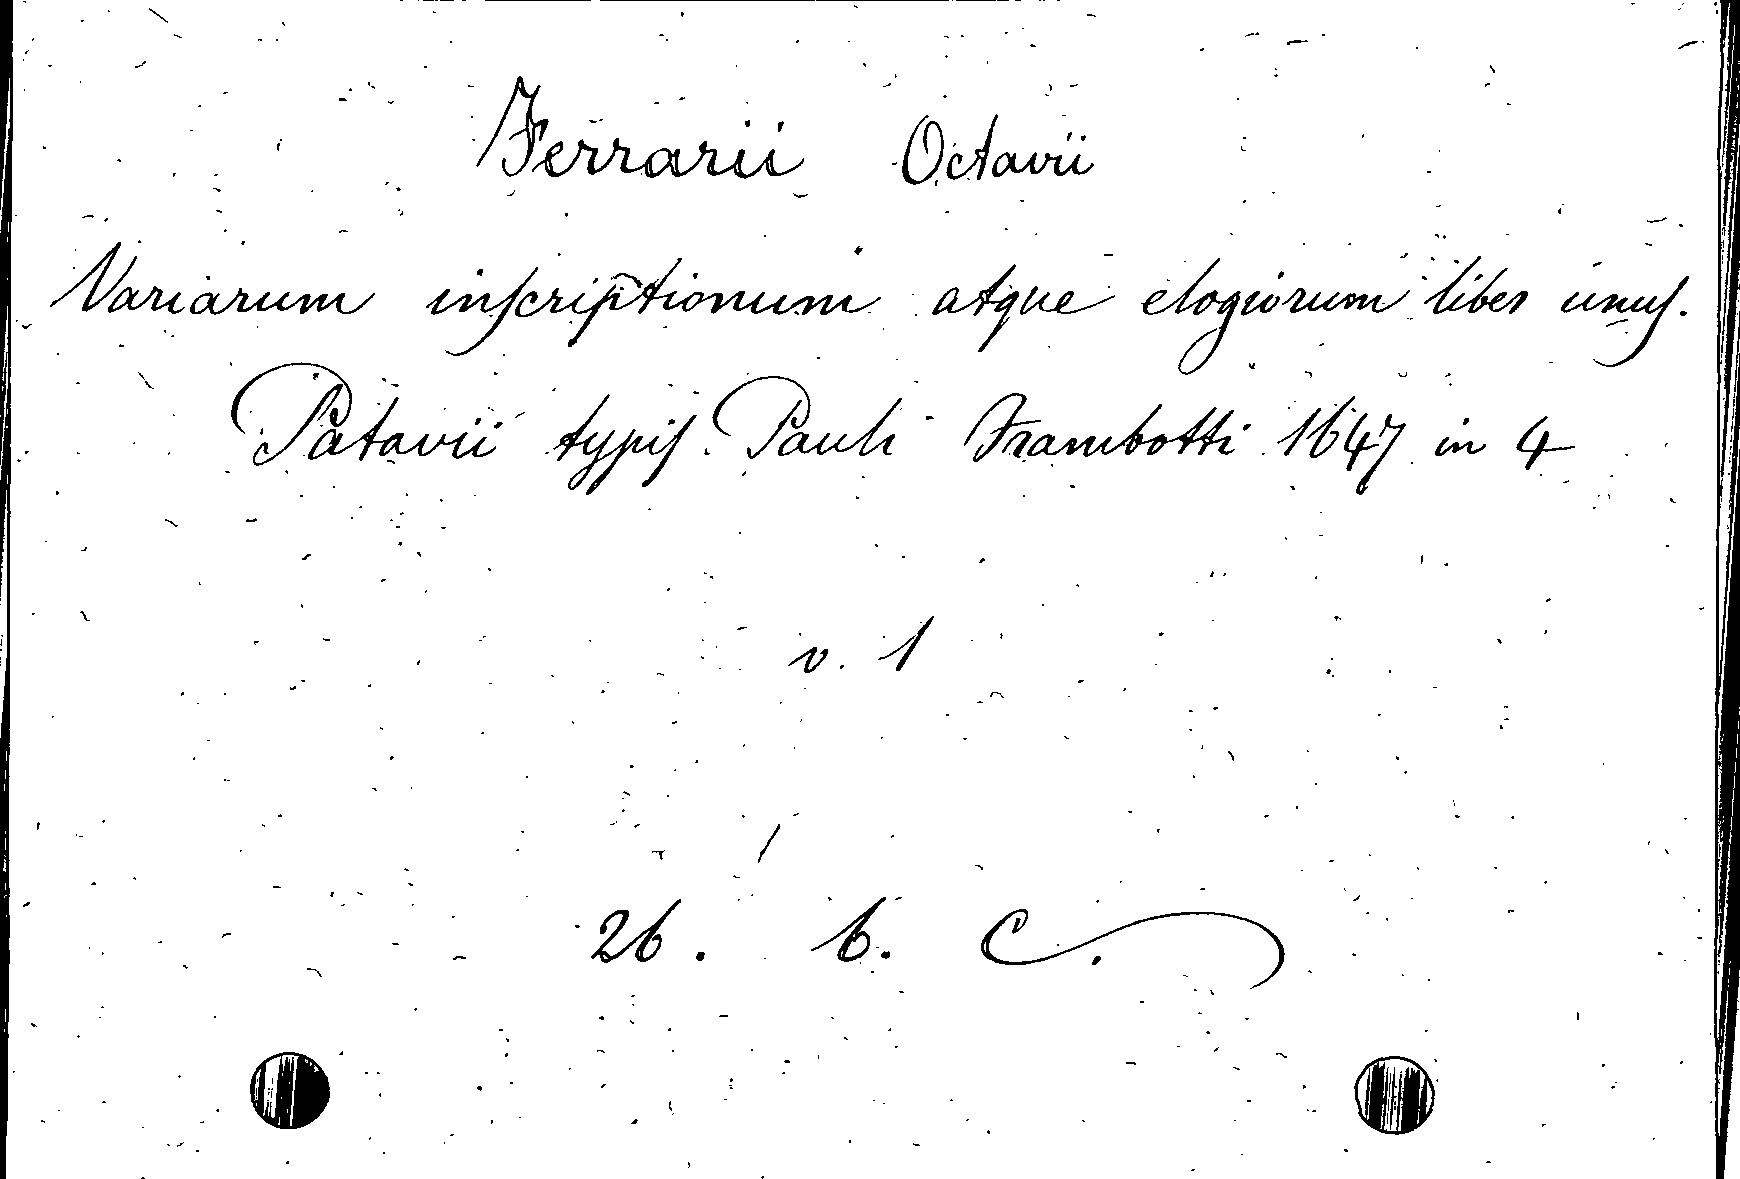 Ferrarii Octavii
Variarum inscriptionum atque elogiorum liber unus.
Patavii typis Pauli Frambotti 1647 in 4
v. 1
26. 6. C.